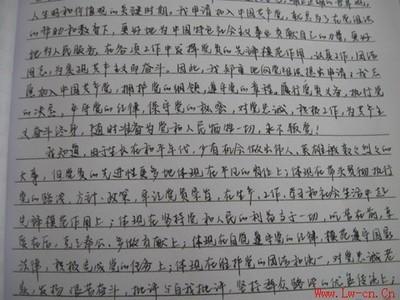 人生观和价值观的关键时期,我申请加入中国共产党,就是为了在党组织
的帮助和教育下,更好地为中国特色社会主义事业贡献自己的力量,更好
地为人民服务,在各项工作中发挥党员的先锋模范作用,认真工作,团结
同志,为实现共产主义而奋斗。因此,我郑重地向党组织提出申请:我志
愿加入中国共产党,拥护党的纲领,遵守党的章程,履行党员义务,执行党
的决定,严守党的纪律,保守党的秘密,对党忠诚,积极工作,为共产主
义奋斗终身,随时准备为党和人民牺牲一切,永不叛党!
我知道,由于生长在和平年代,少有机会做出惊人
大事,但党员的先进性更多地体现在平凡的岗位上:体现在带头贯彻执行
党的路线、方针、政策,牢记党员宗旨,在生产、工作、学习和社会生活中起
先锋模范作用上;体现在坚持党和人民的利益高于一切,吃苦在前,享
受在后,克己奉公,多做贡献上;体现在自觉遵守党的纪律,模范遵守国家
法律,积极完成党的任务上;体现在维护党的团结和统一,对党忠诚老
实,艰苦奋斗,批评与自我批评,坚持群众路线的优良传统上;
www.Lw-cn.Cn